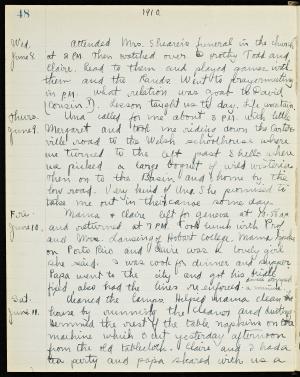 48 1910
Wed. attended Mrs. Shearer's funeral in the church
June 8. at 2 P.M. Then watched over Dorothy Todd and
Claire. Read to them and played games with
them and the Went to prayermeeting
in P.M. What relation was Goat to David
(Cousin?). Lesson taught us to day, life
Thurs. Una called for me about 3 P.M. with little
June 9. Margaret and took me riding down the Carters-
ville road to the Welsh schoolhouse where
we turned to the left past 3 bells where
we picked a large bouquet of wild wisteria
Then on to the Basin and home by the
low road. Very kind of Una. She promised to
take me out in their canoe some day.
Fri. Mama & Claire left for Geneva at 10:50 a.m.
June 10. and returned at 7 P.M. Took lunch with Prof.
and Mrs. Lansing of Hobart College. Mama spoke
on Porto Rico and Claire was a lovely girl
she said. I was cook for dinner and supper
Papa went to the city and got his
field, also had the lines reinforced
Sat. Cleaned the lamps. Helped mama clean the
June 11. house by running the cleaner and dusting
Hemmed the rest of the table napkins on the
machine which I cut yesterday afternoon
from the old tablecloth. Claire and I had a
tea party and papa shared with us a